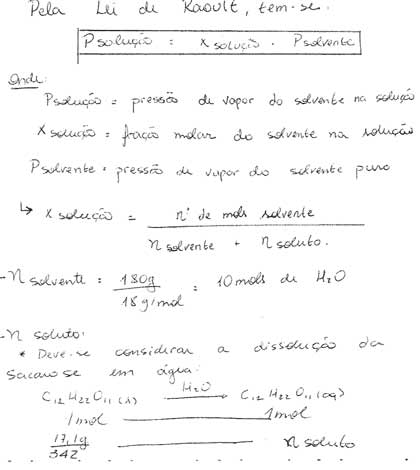 Pela Lei de Raoult, tem-se:
Psolução = x solução . Psolvente
Onde:
Psolução = pressão de vapor do solvente na solução
X solução = fração molar do solvente na solução
Psolvente = pressão de vapor do solvente puro
↳ x solução = nº de mols solvente
n solvente + n soluto.
- n solvente = 180g = 10 mols de H2O
18 g/mol
- n soluto:
* Deve-se considerar a dissolução da
sacarose em água:
C12H22O11(s) H2O→ C12H22O11(aq)
1mol 1mol
17,1g n soluto
342